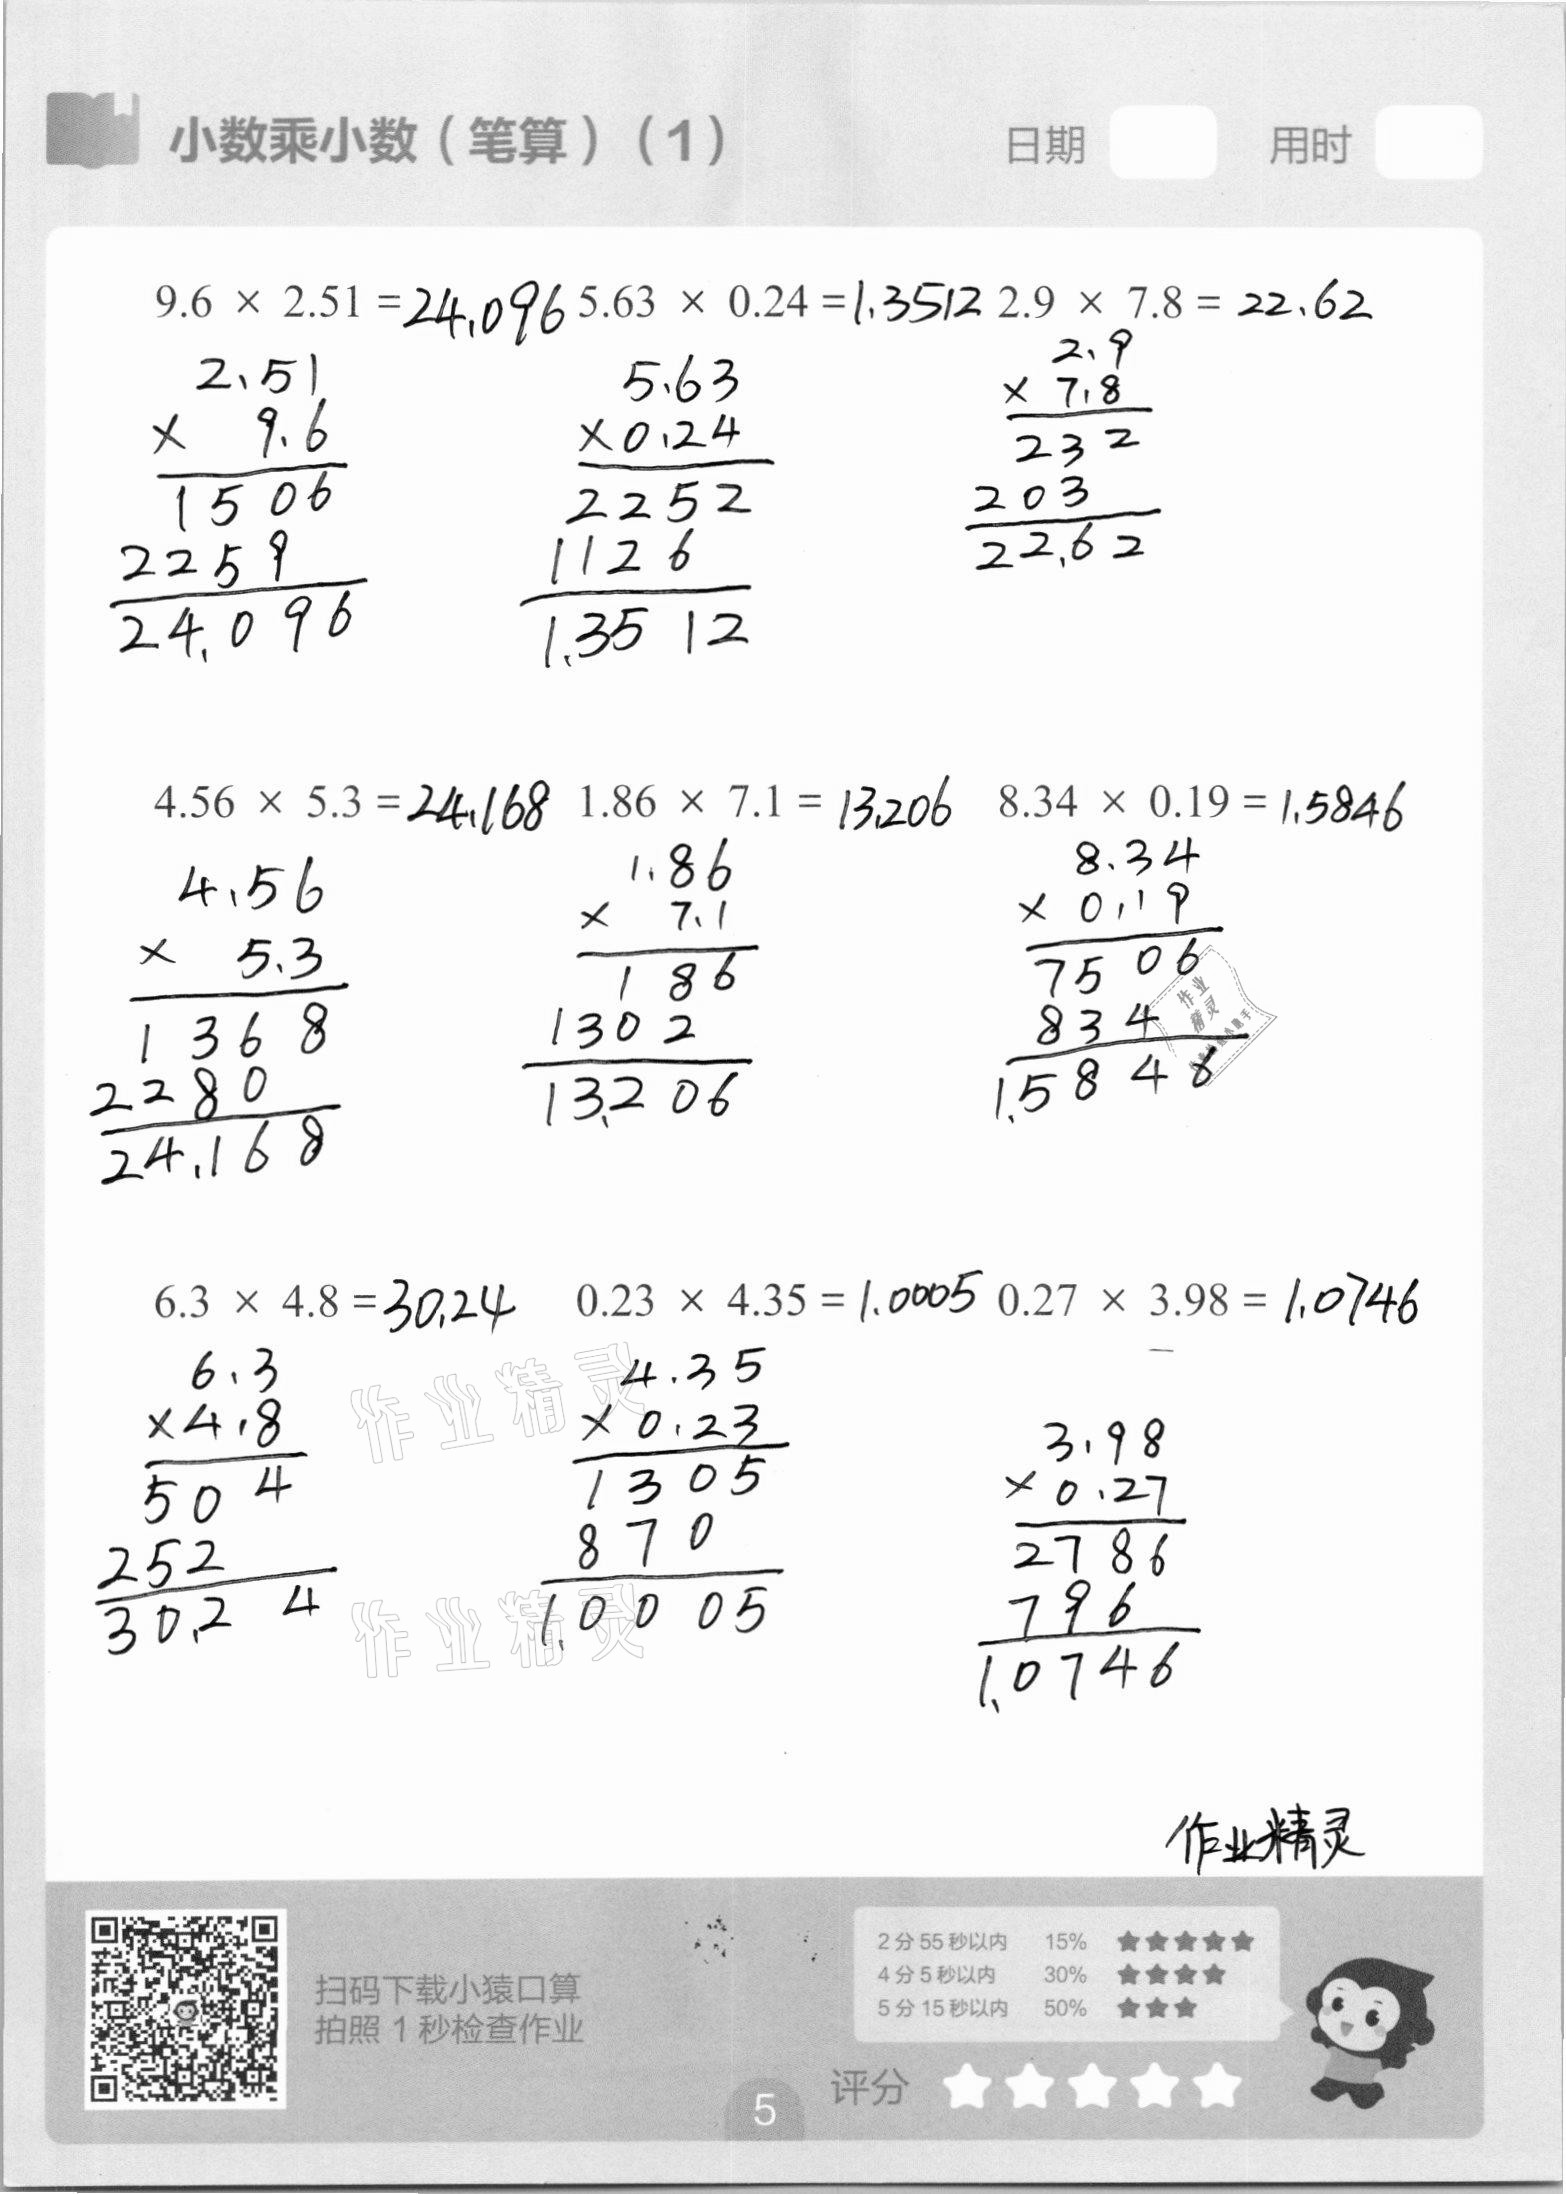 小数乘小数（笔算）（1）	日期	用时
9.6 × 2.51 = 24.096	5.63 × 0.24 = 1.3512	2.9 × 7.8 = 22.62
2.51	5.63	2.9
× 9.6	× 0.24	× 7.8
1506	2252	232
2259	1126	203
24.096	1.3512	22.62
4.56 × 5.3 = 24.168	1.86 × 7.1 = 13.206	8.34 × 0.19 = 1.5846
4.56	1.86	8.34
× 5.3	× 7.1	× 0.19
1368	186	7506
2280	1302	834
24.168	13.206	1.5846
作业
精灵
6.3 × 4.8 = 30.24	0.23 × 4.35 = 1.0005	0.27 × 3.98 = 1.0746
6.3	4.35	3.98
× 4.8	× 0.23	× 0.27
504	1305	2786
252	870	796
30.24	1.0005	1.0746
作业精灵
作业精灵
作业精灵
扫码下载小猿口算
拍照 1 秒检查作业
2 分 55 秒以内 15% ★★★★★
4 分 5 秒以内 30% ★★★★
5 分 15 秒以内 50% ★★★
评分
5